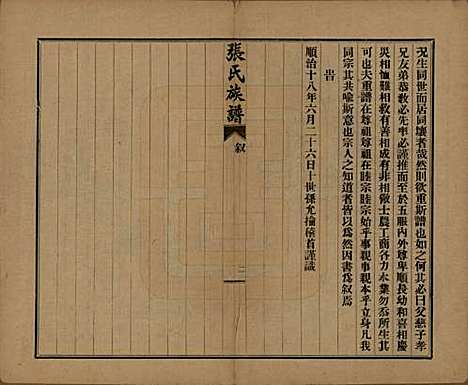 況生同世而居同壤者哉然則欲重斯譜也如之何其必曰父慈子孝
兄友弟恭敎必先率必謹推而至於五服內外尊卑順長幼和喜相慶
災相恤難相救有善相成有非相儆士農工商各力永業勿忝所生其
可也夫重譜在尊祖尊祖在睦宗睦宗始乎事親事親本乎立身凡我
同宗其共喩斯意也宗人之知道者皆以爲然因書爲叙焉
旹
順治十八年六月二十六日十世孫允掄稽首謹識
張氏族譜
叙
二